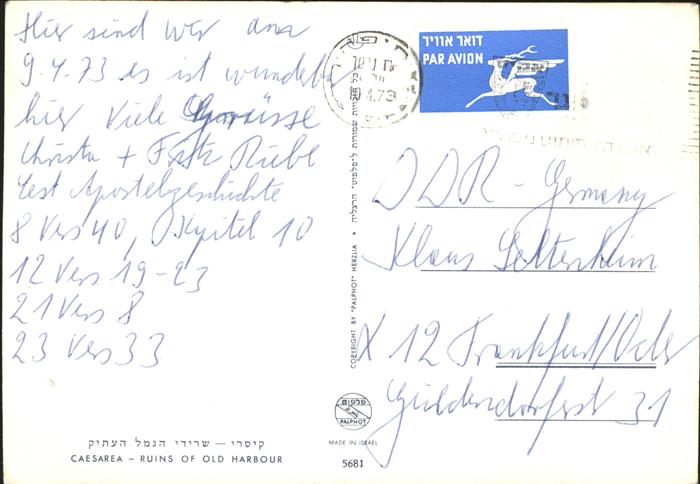 Hier sind wir am
9.4.73 es ist wunderbar
hier Viele Grüsse
Christa + Fritz Riebe
Lest Apostelgeschichte
8 Vers 40, Kapitel 10
12 Vers 19-23
21 Vers 8
23 Vers 33
קיסרי — שרידי הנמל העתיק
CAESAREA – RUINS OF OLD HARBOUR
COPYRIGHT BY "PALPHOT" HERZLIA •
פלפוט
PALPHOT
MADE IN ISRAEL
5681
4.73
דואר אוויר
PAR AVION
DDR - Germany
Klaus
X 12 Frankfurt/Oder
31